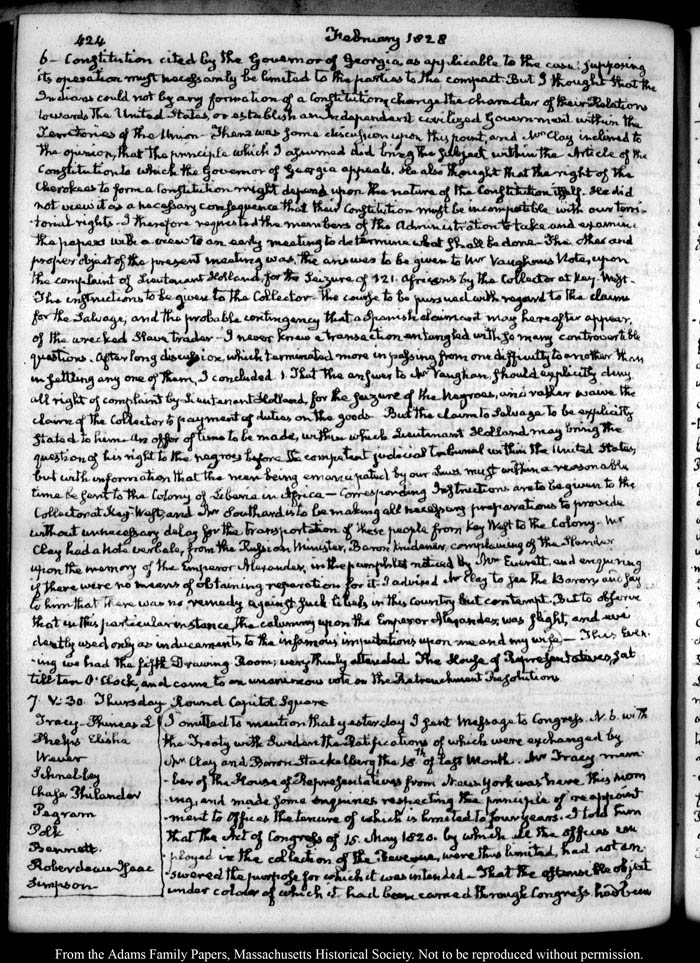 424 February 1828
6— Constitution cited by the Governor of Georgia as applicable to the case: supposing
its operation must necessarily be limited to the parties to the compact. But I thought that the
Indians could not by any formation of a Constitution, change the character of their Relations
towards the United States, or establish an Independent civilized Government within the
Territories of the Union— There was some discussion upon this point, and Mr Clay inclined to
the opinion, that the principle which I assumed did bring the subject within the Article of the
Constitution to which the Governor of Georgia appeals. He also thought that the right of the
Cherokees to form a Constitution might depend upon the nature of the Constitution itself. He did
not view it as a necessary consequence that their Constitution must be incompatible with our terri-
-torial rights. I therefore requested the members of the Administration to take and examine
the papers with a view to an early meeting to determine what shall be done— The other and
proper object of the present meeting was, the answer to be given to Mr Vaughan's Note, upon
the complaint of Lieutenant Holland, for the Seizure of 121. Africans by the Collector at Key-West—
The instructions to be given to the Collector— The course to be pursued with regard to the claim
for the Salvage, and the probable contingency that a Spanish claimant may hereafter appear,
of the wrecked Slave trader— I never knew a transaction entangled with so many controvertible
questions. After long discussion, which terminated more in passing from one difficulty to another than
in settling any one of them, I concluded 1. That the answer to Mr Vaughan should explicitly deny
all right of complaint by Lieutenant Holland, for the seizure of the Negroes, and rather waive the
claim of the Collector to payment of duties on the goods— But the claim to Salvage to be explicitly
stated to him— An offer of time to be made, within which Lieutenant Holland may bring the
question of his right to the negroes before the competent judicial tribunal within the United States,
but with information that the men being emancipated by our Laws must within a reasonable
time be sent to the Colony of Liberia in Africa— Corresponding Instructions are to be given to the
Collector at Key-West, and Mr Southard is to be making all necessary preparations to provide
without unnecessary delay for the transportation of these people from Key West to the Colony— Mr
Clay had a Note verbale, from the Russian Minister, Baron Krudener, complaining of the Slander
upon the memory of the Emperor Alexander, in the pamphlet noticed by Mr Everett, and enquiring
if there were no means of obtaining reparation for it. I advised Mr Clay to see the Baron, and say
to him that there was no remedy against such libels in this Country but contempt. But to observe
that in this particular instance, the calumny upon the Emperor Alexander, was slight, and evi-
dently used only as inducements to the infamous imputations upon me and my wife— This Even-
-ing we had the fifth Drawing Room; very thinly attended. The House of Representatives, sat
till ten O'Clock, and came to an unanimous vote on the Retrenchment Resolutions
7. V:30. Thursday. Round Capitol Square
Tracy– Phineas L
Phelps Elisha
Wever
Schnebley
Chase Philander
Pegram
Polk
Bennett
Roberdeau Isaac
Simpson
I omitted to mention that yesterday I sent Message to Congress. N. 6. with
the Treaty with Sweden the Ratifications of which were exchanged by
Mr Clay and Baron Stackelberg the 18th of last Month. Mr Tracy mem-
-ber of the House of Representatives from New York was here this morn
-ing, and made some enquiries respecting the principle of reappoint
-ment to Offices the tenure of which is limited to four years— I told him
that the Act of Congress of 15. May 1820. by which all the Offices em
ployed in the collection of the Revenue, were thus limited, had not an
-swered the purpose for which it was intended— That the ostensible object
under colour of which it had been carried through Congress had been
From the Adams Family Papers, Massachusetts Historical Society. Not to be reproduced without permission.